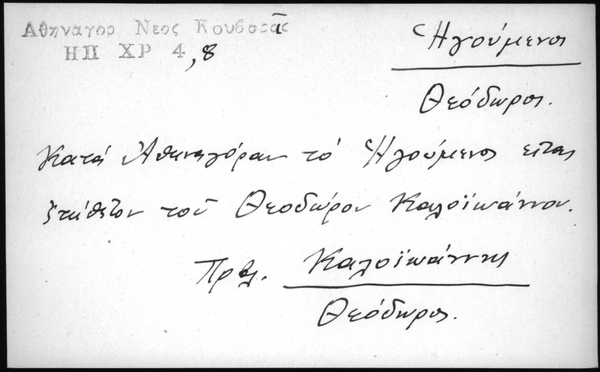 Αθηναγορ Νεος Κουβαρᾶς
ΗΠ ΧΡ 4,8
Ἡγούμενος
Θεόδωρος.
Κατά Ἀθηναγόραν τό Ἡγούμενος εἶναι
ἐπίθετον τοῦ Θεοδώρου Καλοϊωάννου.
Πρβλ. Καλοϊωάννης
Θεόδωρος.